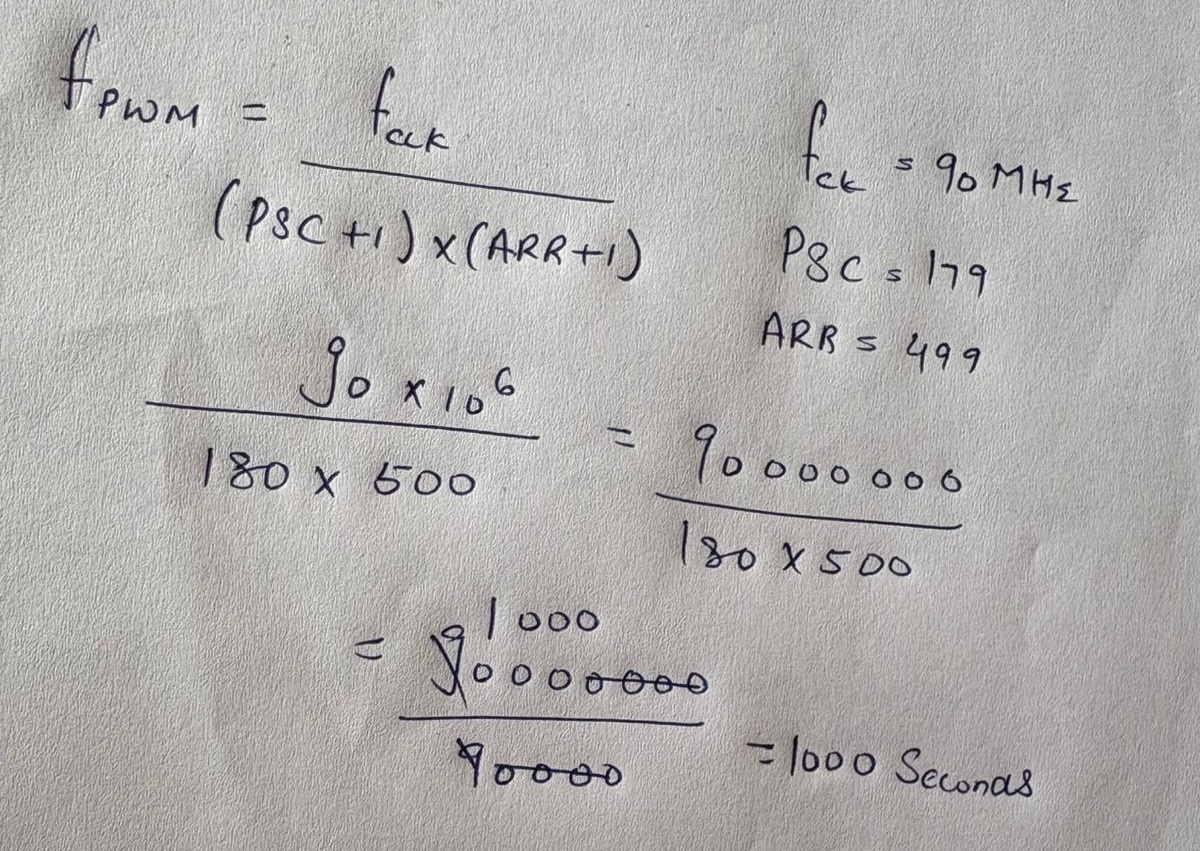 fPWM = fCLK / (PSC+1) x (ARR+1)
fCK = 90 MHz
PSC = 179
ARR = 499
90 x 10^6 / 180 x 500 = 90000000 / 180 x 500
1000
= 90000000 / 90000 = 1000 Seconds